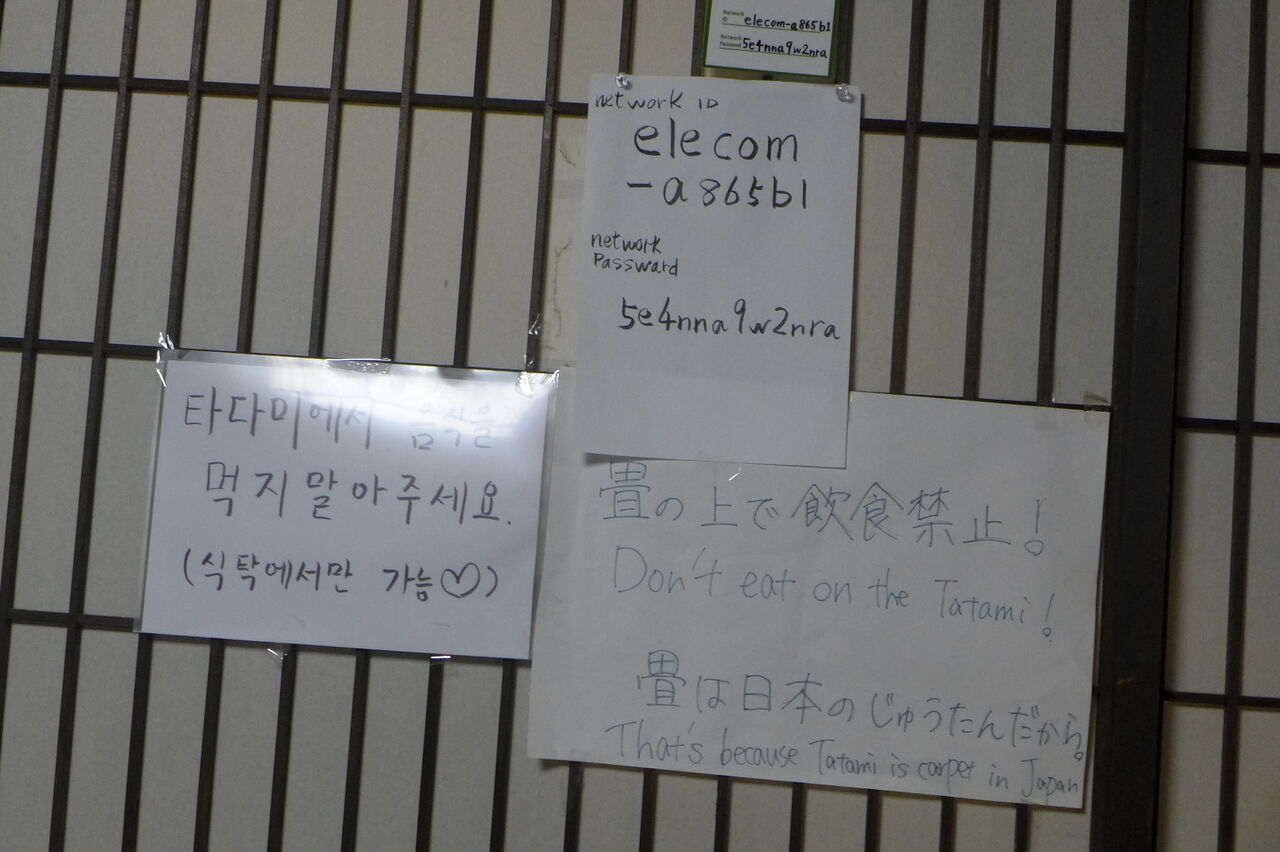 Network
ID elecom-a865b1
Network
Password 5e4nna9w2nra
network ID
elecom
-a865b1
network
Passward
5e4nna9w2nra
타다미에서 음식을
먹지말아주세요.
(식탁에서만 가능♡)
畳の上で飲食禁止!
Don't eat on the Tatami!
畳は日本のじゅうたんだから。
That's because Tatami is carpet in Japan